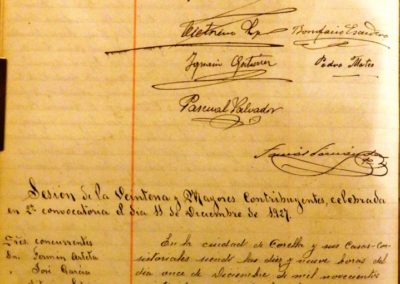 Bonifacio Escudero
Ignacio Pedro Mateo
Pascual Salvador
Sesión de la Veintena y Mayores Contribuyentes, celebrada
en 2ª convocatoria el dia 11 de Diciembre de 1927.
Sres. concurrentes
Dn. Fermin Arteta
" José Garcia
En la ciudad de Corella y sus Casas Con-
sistoriales siendo las diez y nueve horas del
día once de Diciembre de mil novecientos